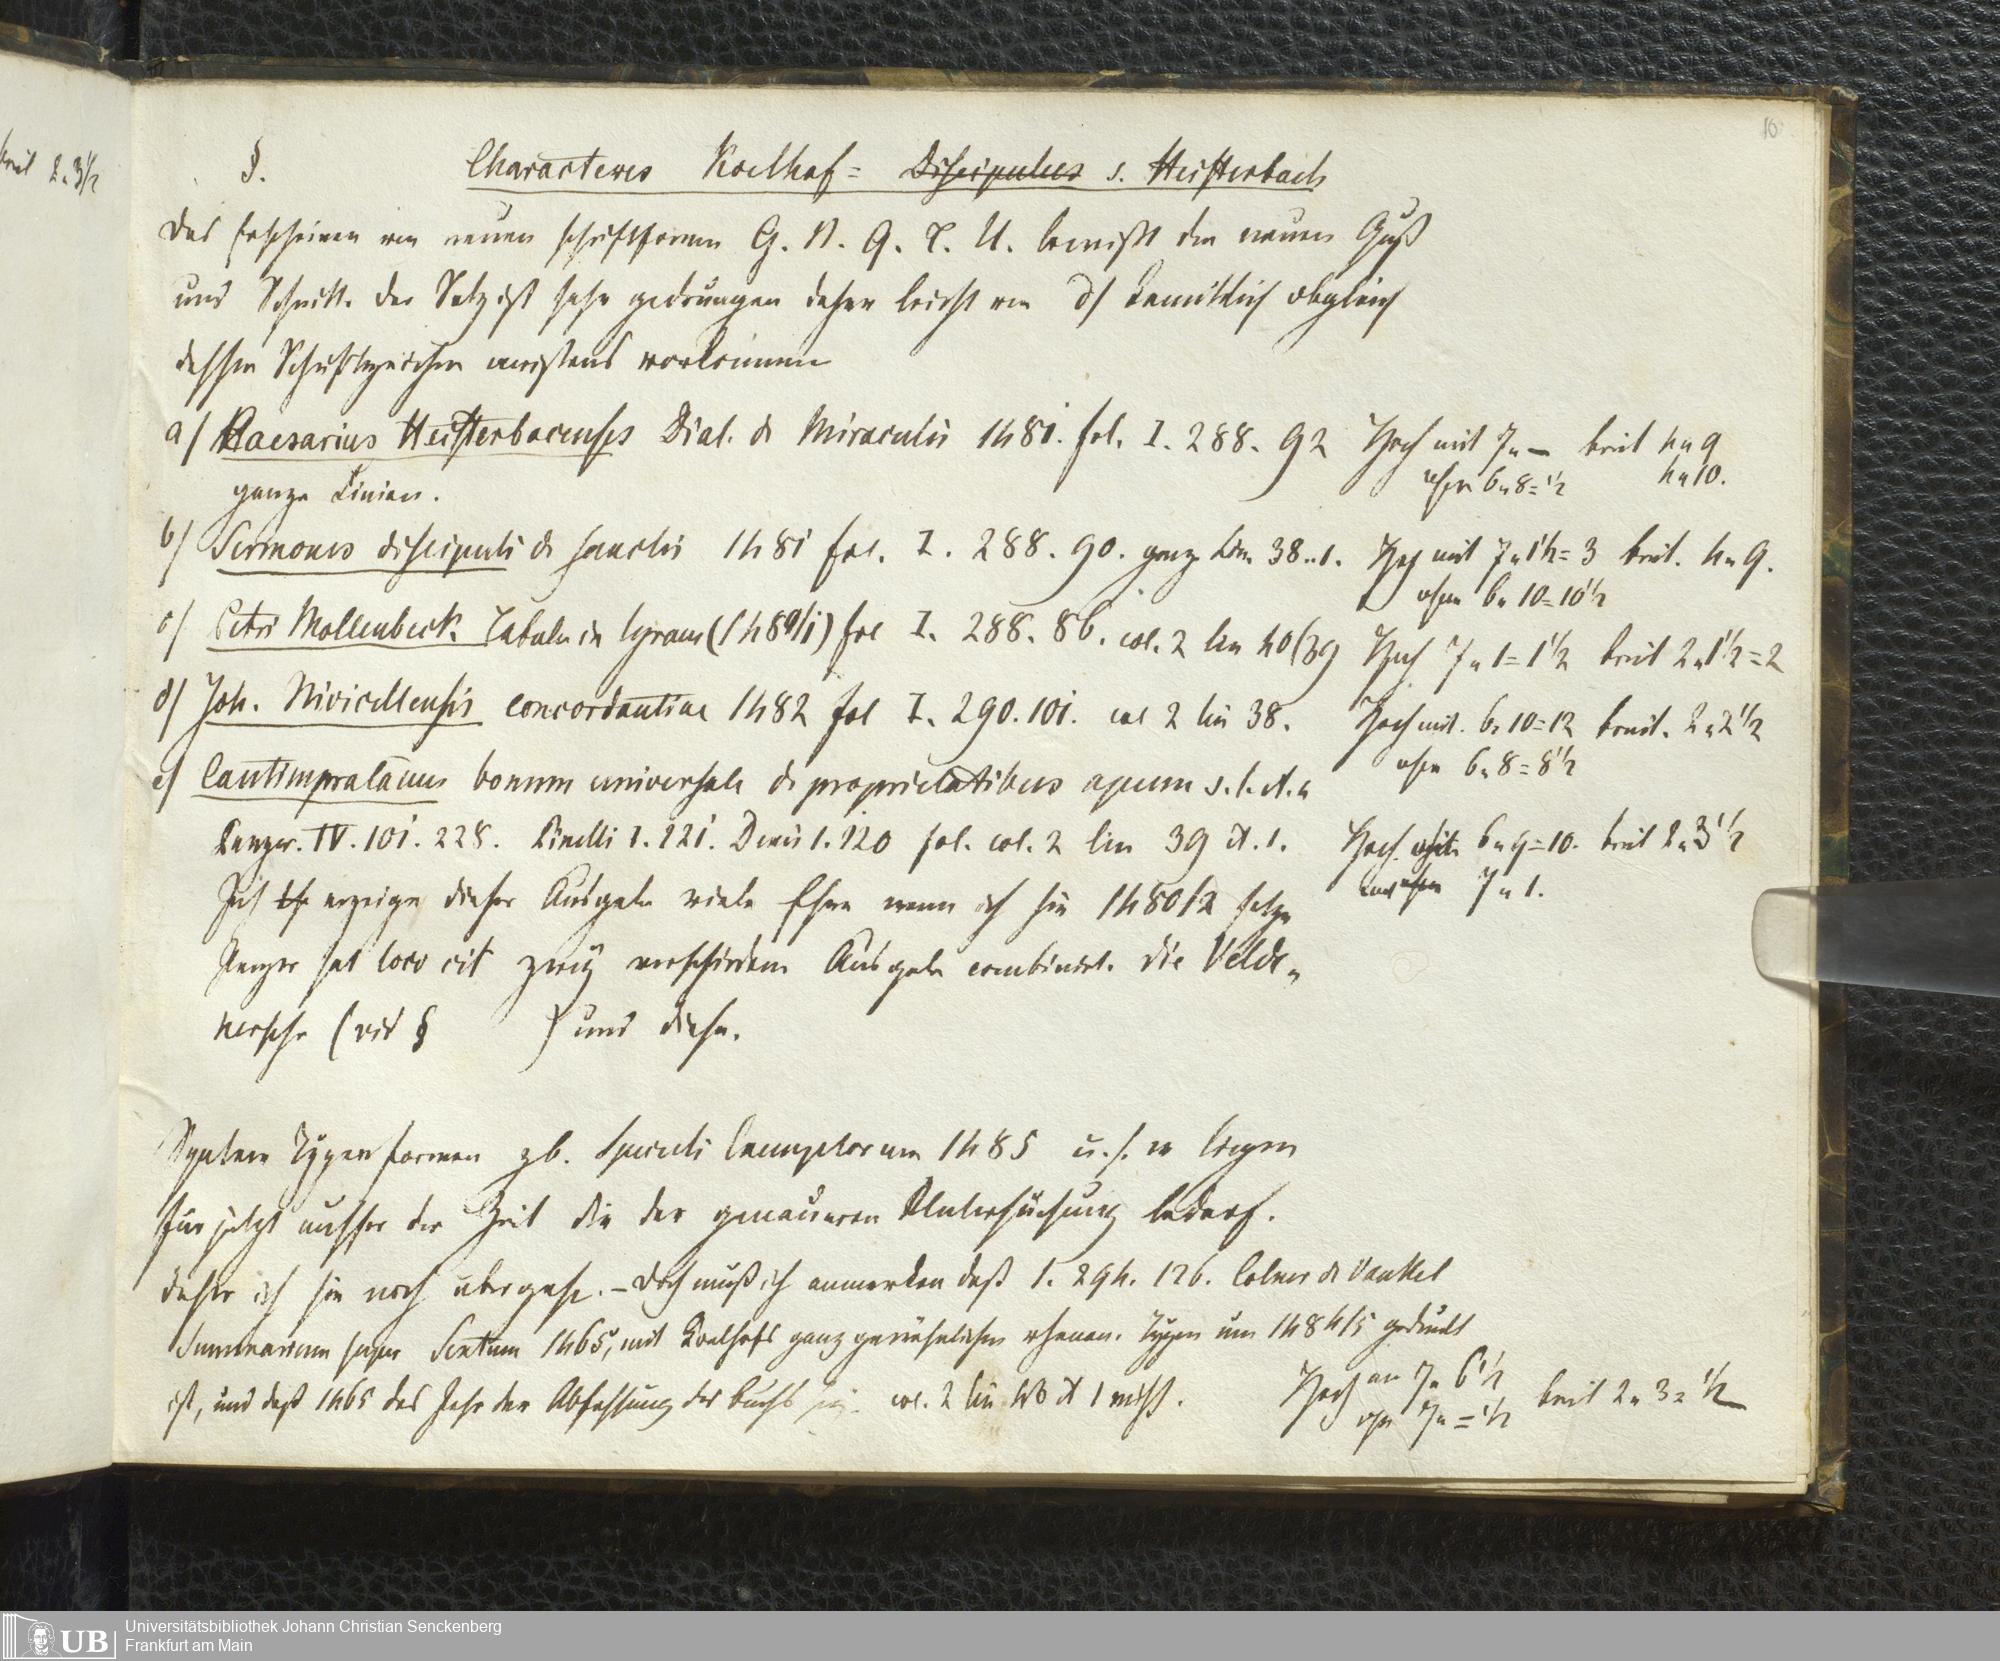 10
breit 2„3½
§. Characteres Koelhof= Discipulus s. Heisterbach
Das Erscheinen von neuen Schriftformen G. N. Q. T. U. beweist den neuen Guß
und Schnitt. Der Satz ist sehr gedrungen daher leicht von d) kenntlich obgleich
dessen Schriftzeichen meistens vorkommen
a) Caesarius Heisterbacensis Dial. de Miraculis 1481. fol. I. 288. 92 Hoch mit 7„— breit 4„9
ganze Linien. ohne 6„8=½ 4„10.
b) Sermones discipuli de sanctis 1481 fol. I. 288. 90. ganz Lin. 38..1. Hoch mit 7„1½=3 breit. 4„9.
ohne 6„10=10½
c) Petri Mollenbeck. Tabula in Lyram (1480/1) fol I. 288. 86. col. 2 lin 40(39 Hoch 7„1=1½ breit 2„1½=2
d) Joh. Nivicellensis concordantiae 1482 fol I. 290. 101. col 2 lin 38. Hoch mit. 6„10=12 breit. 2„2½
ohne 6„8=8½
e) Cantimpratanus bonum universale de proprietatibus apum s. l. et. a
Panzer. IV. 101. 228. Pinelli I. 121. Denis 1. 120 fol. col. 2 lin 39 et. 1. Hoch 6„9=10. breit 2„3½
Ich erzeige dieser Ausgabe viele Ehre wenn ich sie 1480/2 setze 7„1.
Panzer hat loco cit zwey verschiedene Ausgaben combinirt. die Velde„
nersche (vid § ) und diese.
Spätere Typenformen zb. Speculi Exemplorum 1485 u. s. w liegen
für jetzt ausser der Zeit die der genaueren Untersuchung bedarf.
daher ich sie noch übergehe. – Doch muß ich anmerken daß I. 294. 126. Colner de Vankel
Summarium super Sextum 1465, mit Koelhofs ganz gewöhnlichen rhenan. Typen um 1484/5 gedruckt
ist, und daß 1465 das Jahr der Abfassung des Buchs sey. col. 2 lin 40 et 1 mißt. Hoch 7„6½ breit 2„3=½
ohne 7„=½
Universitätsbibliothek Johann Christian Senckenberg
Frankfurt am Main
UB